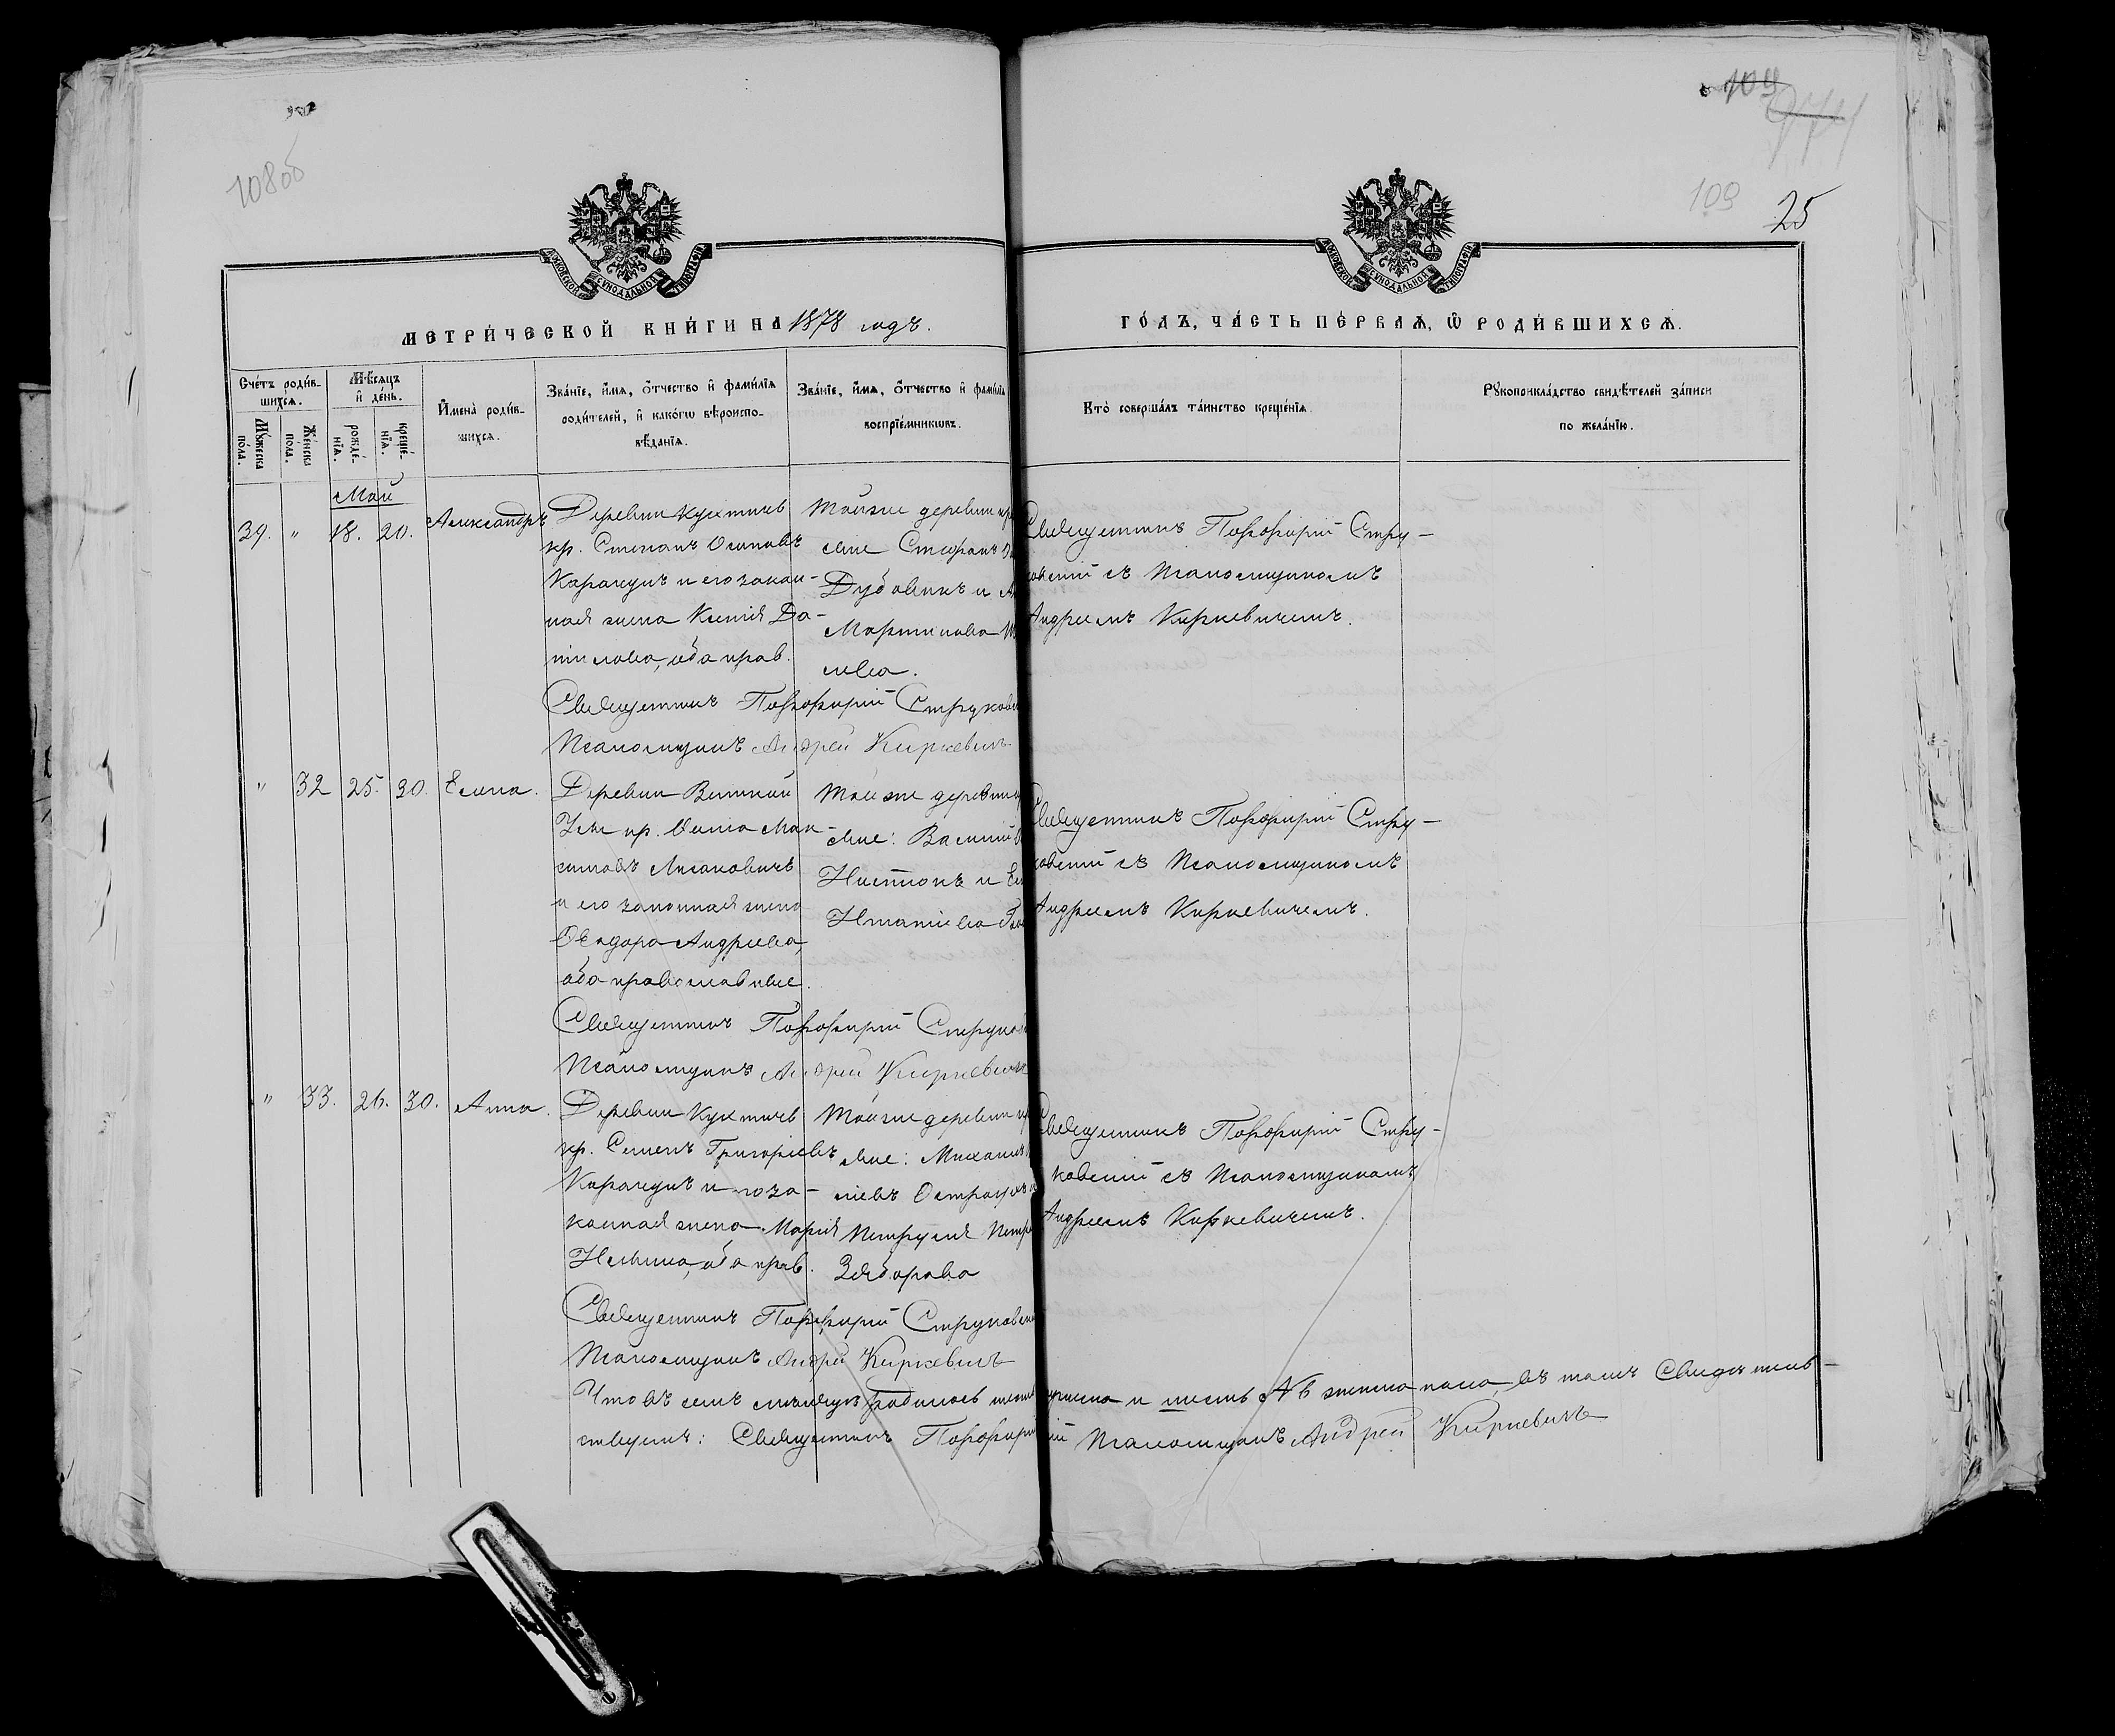 108об
109
109
25
МЕТРИ́ЧЕСКОЙ КНИ́ГИ НА 1878 годъ.
ГО́ДЪ, ЧА́СТЬ ПЕ́РВАѦ, Ѡ҆ РОДИ́ВШИХСѦ.
Сче́тъ роди́в-
шихсѧ.
Мѣ́сѧцъ
и҆ де́нь.
Му́жеска
по́ла.
Же́нска
по́ла.
рожде́-
нїѧ.
креще́-
нїѧ.
И҆мена̀ роди́в-
шихсѧ.
Зва́нїе, и҆́мѧ, ѻ҆́тчество и҆ фами́лїѧ
роди́телей, и҆ како́гѡ вѣроиспо-
вѣ́данїѧ.
Зва́нїе, и҆́мѧ, ѻ҆́тчество и҆ фами́лїѧ
воспрїе́мникѡвъ.
Кто̀ соверша́лъ та́инство креще́нїѧ.
Рꙋкоприкла́дство свидѣ́телей за́писи
по жела́нїю.
Май
39. " 18. 20. Александръ
Деревни Кухтичъ
кр. Степанъ Осиповъ
Карачунъ и его закон-
ная жена Ксенія Да-
нилова, оба прав.
Тойже деревни кре
яне Стефанъ
Дубовикъ и
Мартинова
лева.
Священникъ Порфирій Стру-
ковскій съ Псаломщикомъ
Андреемъ Киркевичемъ.
Священникъ Порфирій Струковс
Псаломщикъ Андрей Киркевичъ
" 32 25. 30. Елена.
Деревни Великой
Усы кр. Ѳома Мак-
симовъ Лисаковичъ
и его законная жена
Ѳеодора Андреева,
оба православные.
Тойже деревни
яне: Василій
и
Игнатіева
Священникъ Порфирій Стру-
ковскій съ Псаломщикомъ
Андреемъ Киркевичемъ.
Священникъ Порфирій Струков
Псаломщикъ Андрей Киркевичъ
" 33. 26. 30. Анна.
Деревни Кухтичъ
кр. Семенъ Григорьевъ
Карачунъ и его за-
конная жена Марія
Ильина, оба прав.
Тойже деревни кр
яне: Михаилъ
Петруня Петро
Священникъ Порфирій Стру-
ковскій съ Псаломщикомъ
Андреемъ Киркевичемъ.
Священникъ Порфирій Струковскі
Псаломщикъ Андрей Киркевичъ
Что въ семъ мѣсяцѣ родилось и шесть женска пола, въ томъ Свидѣтель-
ствуемъ: Священникъ Порфирій Псаломщикъ Андрей Киркевичъ